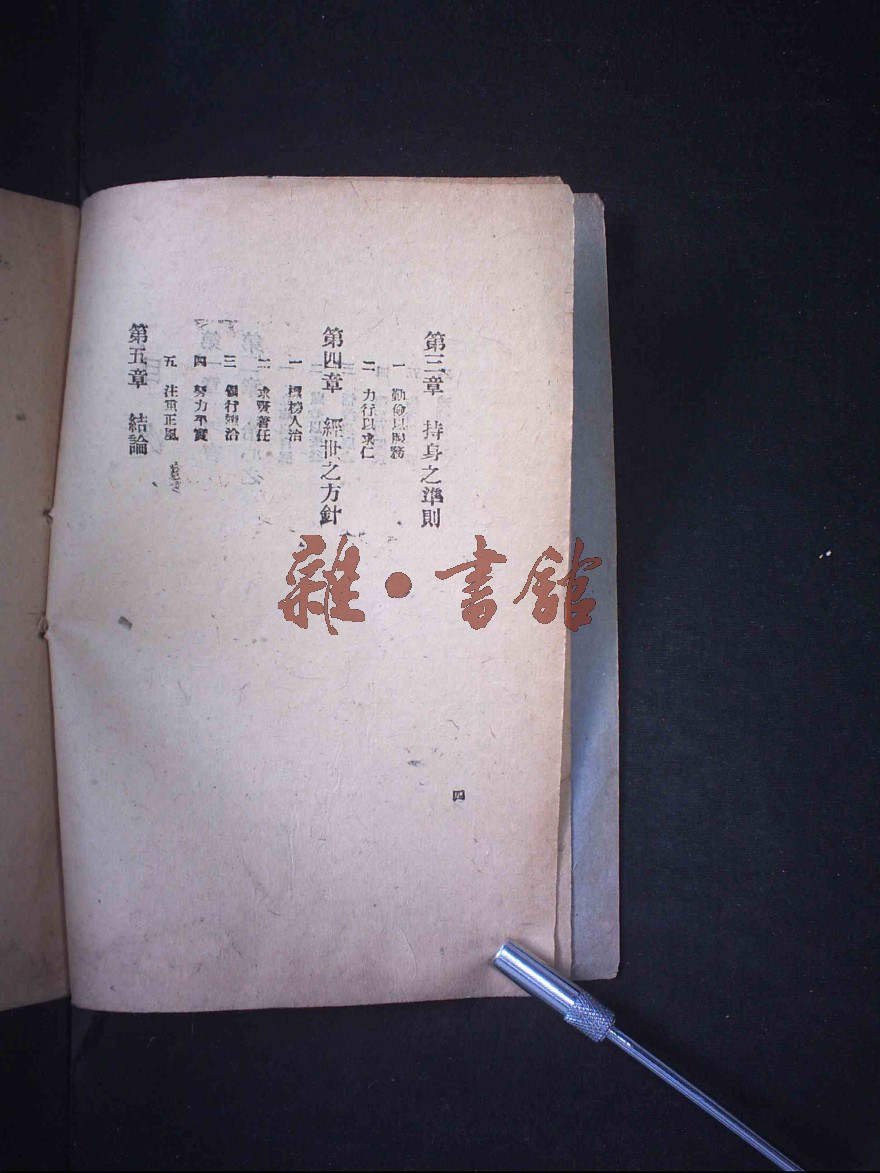 第三章 持身之準則
一 勤儉以服務
二 力行以求仁
第四章 經世之方針
一 標榜人治
二 求賢著任
三 行
四 努力平實
五 注重正風
第五章 結論
四
雜·書館